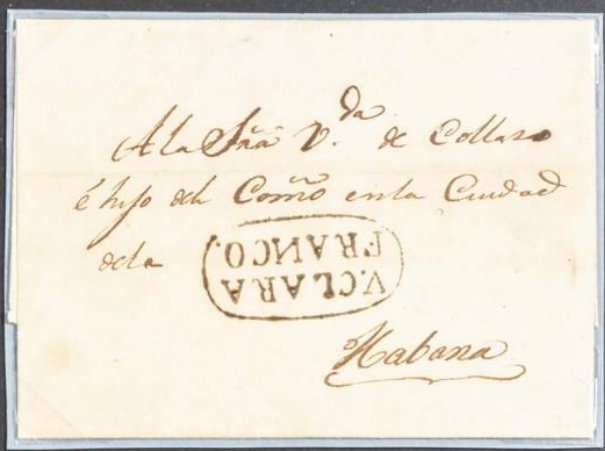 A la Sñã V.da de Collazo
é hijo del Comõ en la Ciudad
de la
V. CLARA
FRANCO.
Habana